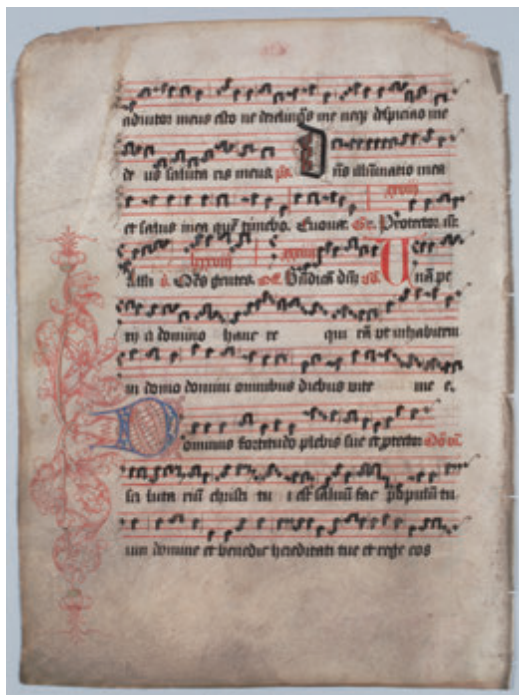 adiutor meus esto ne derelinqs me neqz despicias me
de us saluta ris meus ps. D ns illuminatio mea
xxxviij
et salus mea que timebo. Euouae. Gr. Protector nr
lxxxiiij xxxviij
Alla v. Oes gentes. off. Bndicā dnm cō. U nā pe
tij a domino hanc re qui rā vt inhabitem
in domo domini omnibus diebus vite me e.
Dominus fortitudo plebis sue et ptector
sa luta riū christi tu i est saluū fac populum tu
um domine et benedic hereditati tue et rege eos